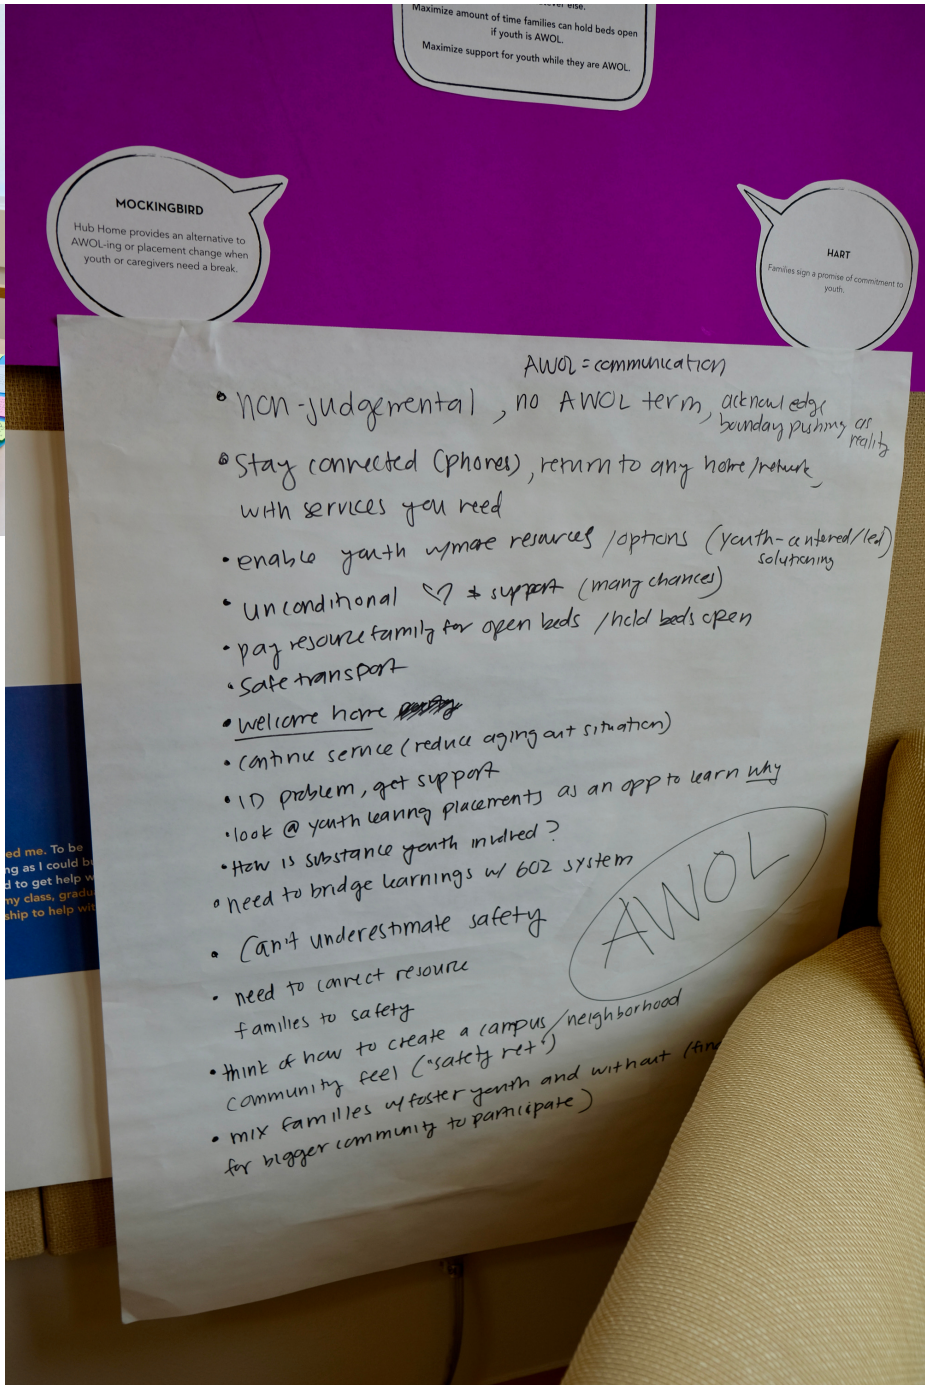 else.
Maximize amount of time families can hold beds open
if youth is AWOL.
Maximize support for youth while they are AWOL.
MOCKINGBIRD
Hub Home provides an alternative to
AWOL-ing or placement change when
youth or caregivers need a break.
HART
Families sign a promise of commitment to
youth.
AWOL = communication
• non-judgemental, no AWOL term, acknowledge
bounday pushing as
reality
• Stay connected (phones), return to any home/network,
with services you need
• enable youth w/more resources /options (youth-centered/led)
solutioning
• unconditional ♡ + support (many chances)
• pay resource family for open beds /hold beds open
• Safe transport
• welcome home
• continue service (reduce aging out situation)
• ID problem, get support
• look @ youth leaving placements as an opp to learn why
• How is substance youth involved?
• need to bridge learnings w/ 602 system
AWOL
• Can't underestimate safety
• need to connect resource
families to safety
• think of how to create a campus/neighborhood
community feel ("safety net")
• mix families w/foster youth and without (fin
for bigger community to participate)
ed me. To be
ng as I could b
d to get help w
my class, gradu
ship to help wit